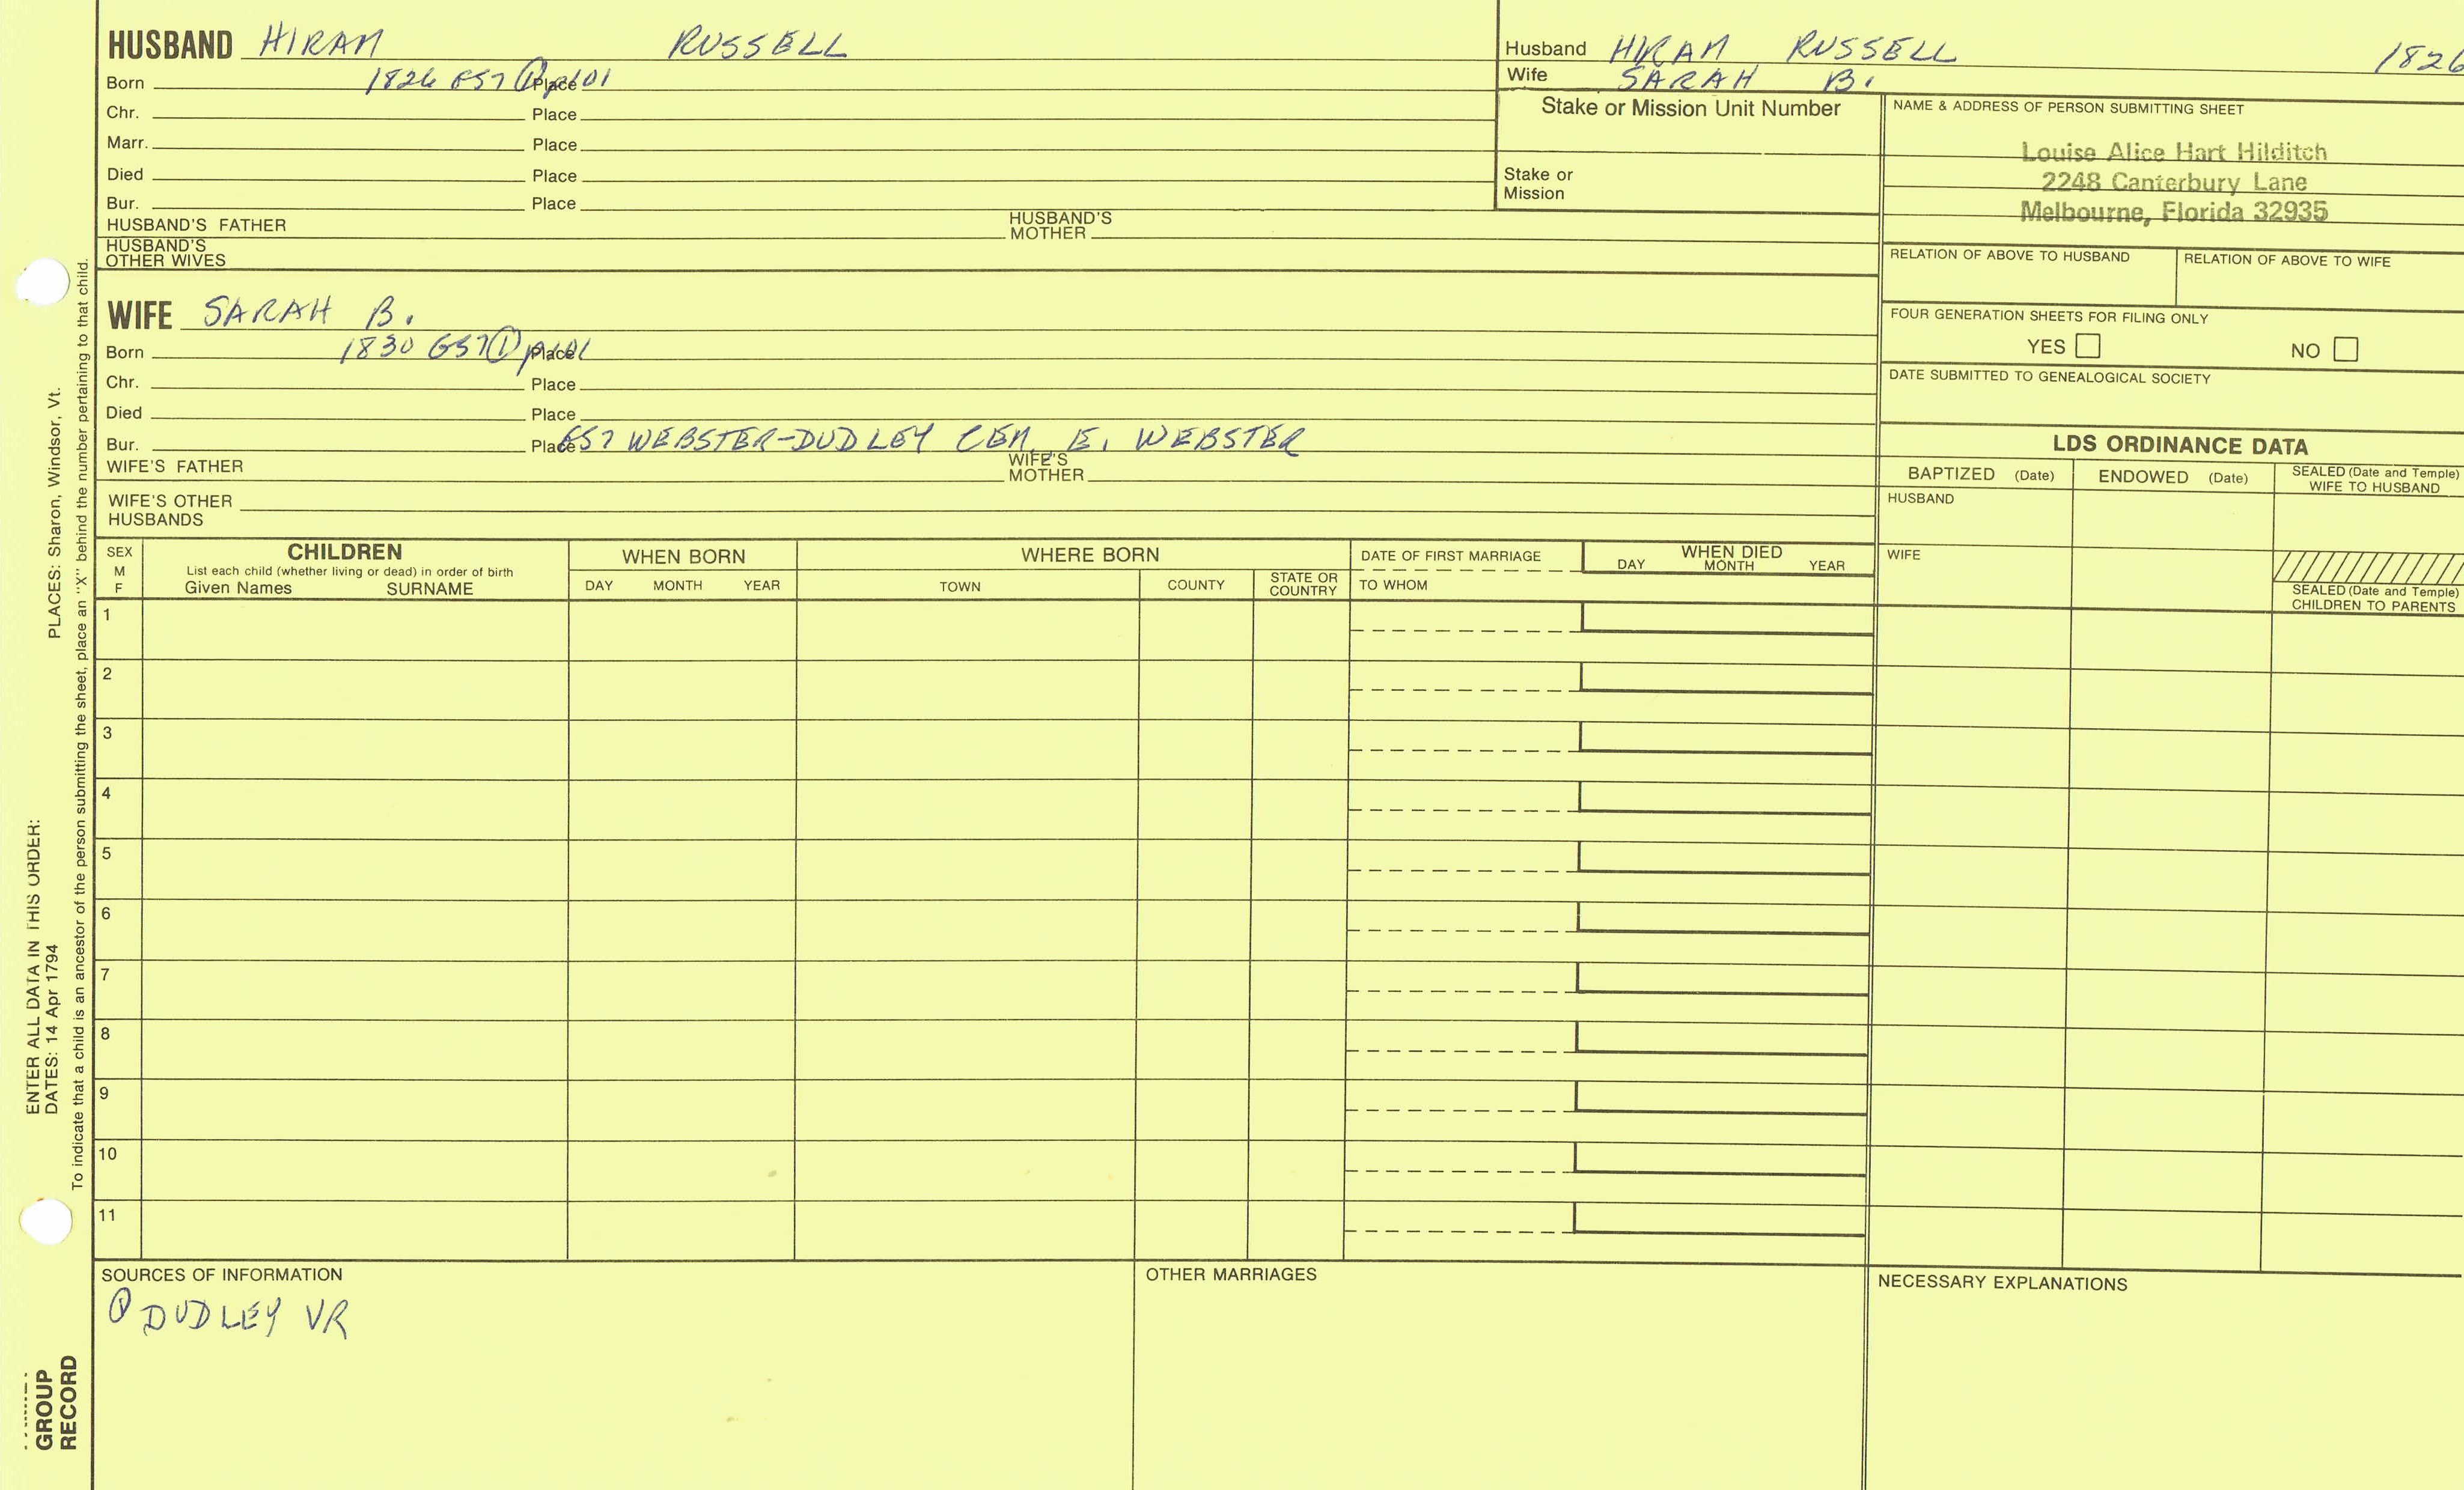 HUSBAND HIRAM RUSSELL
Born 1826 Place
Chr. Place
Marr. Place
Died Place
Bur. Place
HUSBAND'S FATHER HUSBAND'S MOTHER
HUSBAND'S OTHER WIVES
WIFE SARAH B.
Born 1830 Place
Chr. Place
Died Place
Bur. Place WEBSTER-DUDLEY CEM, E. WEBSTER
WIFE'S FATHER WIFE'S MOTHER
WIFE'S OTHER HUSBANDS
Husband HIRAM RUSSELL 1826
Wife SARAH B.
Stake or Mission Unit Number
Stake or
Mission
NAME & ADDRESS OF PERSON SUBMITTING SHEET
Louise Alice Hart Hilditch
2248 Canterbury Lane
Melbourne, Florida 32935
RELATION OF ABOVE TO HUSBAND RELATION OF ABOVE TO WIFE
FOUR GENERATION SHEETS FOR FILING ONLY
YES NO
DATE SUBMITTED TO GENEALOGICAL SOCIETY
LDS ORDINANCE DATA
BAPTIZED (Date) ENDOWED (Date) SEALED (Date and Temple) WIFE TO HUSBAND
HUSBAND
WIFE
SEALED (Date and Temple)
CHILDREN TO PARENTS
SEX M F
CHILDREN
List each child (whether living or dead) in order of birth
Given Names SURNAME
WHEN BORN
DAY MONTH YEAR
WHERE BORN
TOWN COUNTY STATE OR COUNTRY
DATE OF FIRST MARRIAGE
TO WHOM
WHEN DIED
DAY MONTH YEAR
1
2
3
4
5
6
7
8
9
10
11
SOURCES OF INFORMATION
① DUDLEY VR
OTHER MARRIAGES
NECESSARY EXPLANATIONS
ENTER ALL DATA IN THIS ORDER:
DATES: 14 Apr 1794 PLACES: Sharon, Windsor, Vt.
To indicate that a child is an ancestor of the person submitting the sheet, place an "X" behind the number pertaining to that child.
GROUP
RECORD